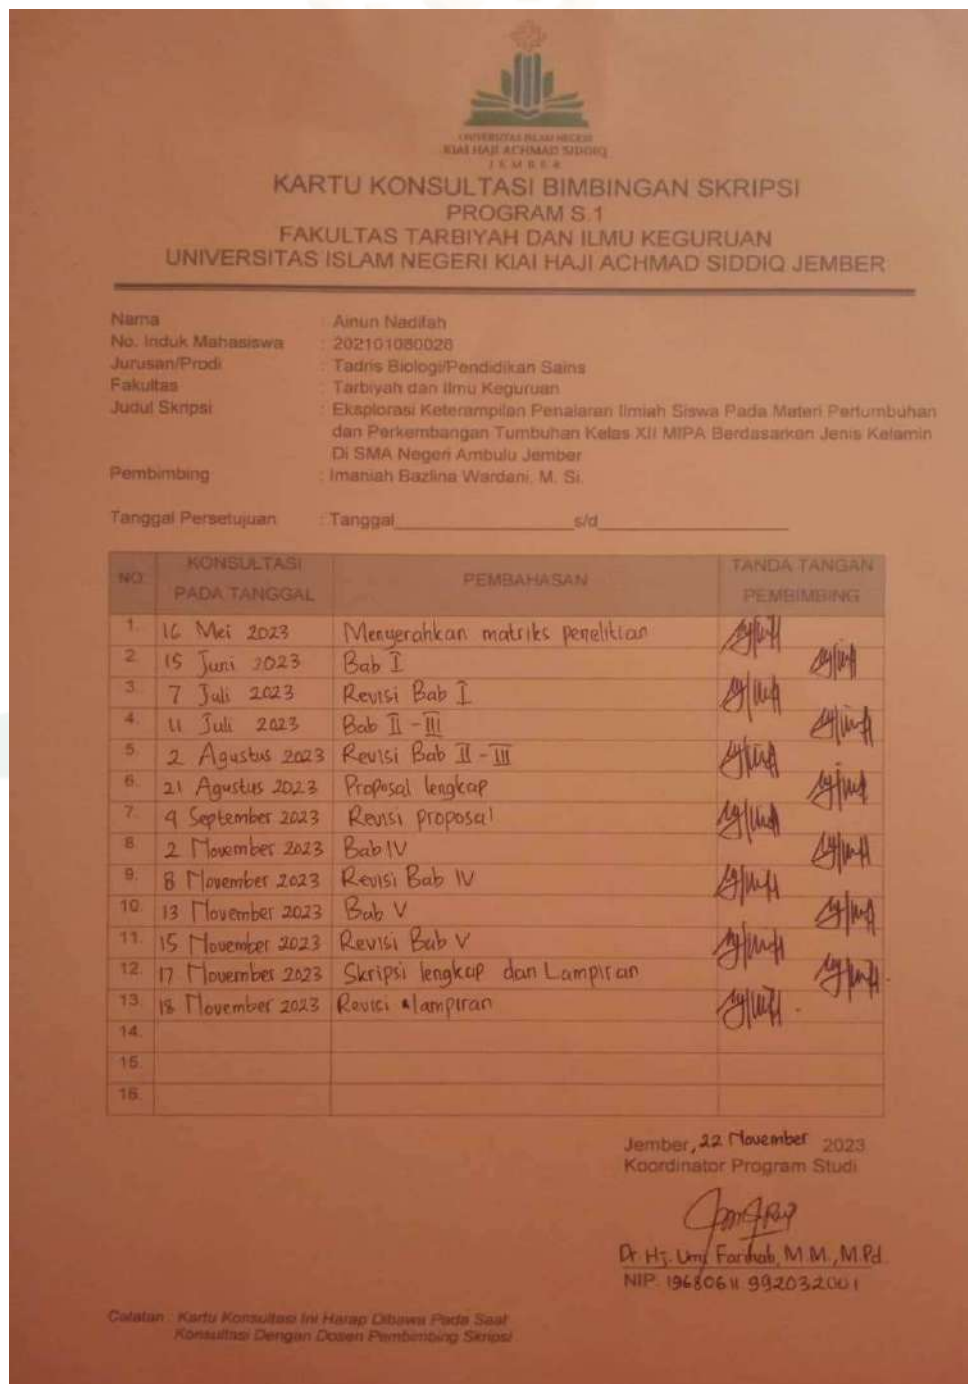 UNIVERSITAS ISLAM NEGERI
KIAI HAJI ACHMAD SIDDIQ
JEMBER
KARTU KONSULTASI BIMBINGAN SKRIPSI
PROGRAM S.1
FAKULTAS TARBIYAH DAN ILMU KEGURUAN
UNIVERSITAS ISLAM NEGERI KIAI HAJI ACHMAD SIDDIQ JEMBER
Nama : Ainun Nadifah
No. Induk Mahasiswa : 202101080028
Jurusan/Prodi : Tadris Biologi/Pendidikan Sains
Fakultas : Tarbiyah dan Ilmu Keguruan
Judul Skripsi : Eksplorasi Keterampilan Penalaran Ilmiah Siswa Pada Materi Pertumbuhan
dan Perkembangan Tumbuhan Kelas XII MIPA Berdasarkan Jenis Kelamin
Di SMA Negeri Ambulu Jember
Pembimbing : Imaniah Bazlina Wardani, M. Si.
Tanggal Persetujuan : Tanggal_______________s/d_______________
NO. KONSULTASI PADA TANGGAL PEMBAHASAN TANDA TANGAN PEMBIMBING
1. 16 Mei 2023 Menyerahkan matriks penelitian
2. 15 Juni 2023 Bab I
3. 7 Juli 2023 Revisi Bab I
4. 11 Juli 2023 Bab II - III
5. 2 Agustus 2023 Revisi Bab II - III
6. 21 Agustus 2023 Proposal lengkap
7. 4 September 2023 Revisi proposal
8. 2 November 2023 Bab IV
9. 8 November 2023 Revisi Bab IV
10. 13 November 2023 Bab V
11. 15 November 2023 Revisi Bab V
12. 17 November 2023 Skripsi lengkap dan Lampiran
13. 18 November 2023 Revisi lampiran
14.
15.
16.
Jember, 22 November 2023
Koordinator Program Studi
Dr. Hj. Umi Farihah, M.M., M.Pd.
NIP. 19680611 992032001
Catatan : Kartu Konsultasi Ini Harap Dibawa Pada Saat
Konsultasi Dengan Dosen Pembimbing Skripsi